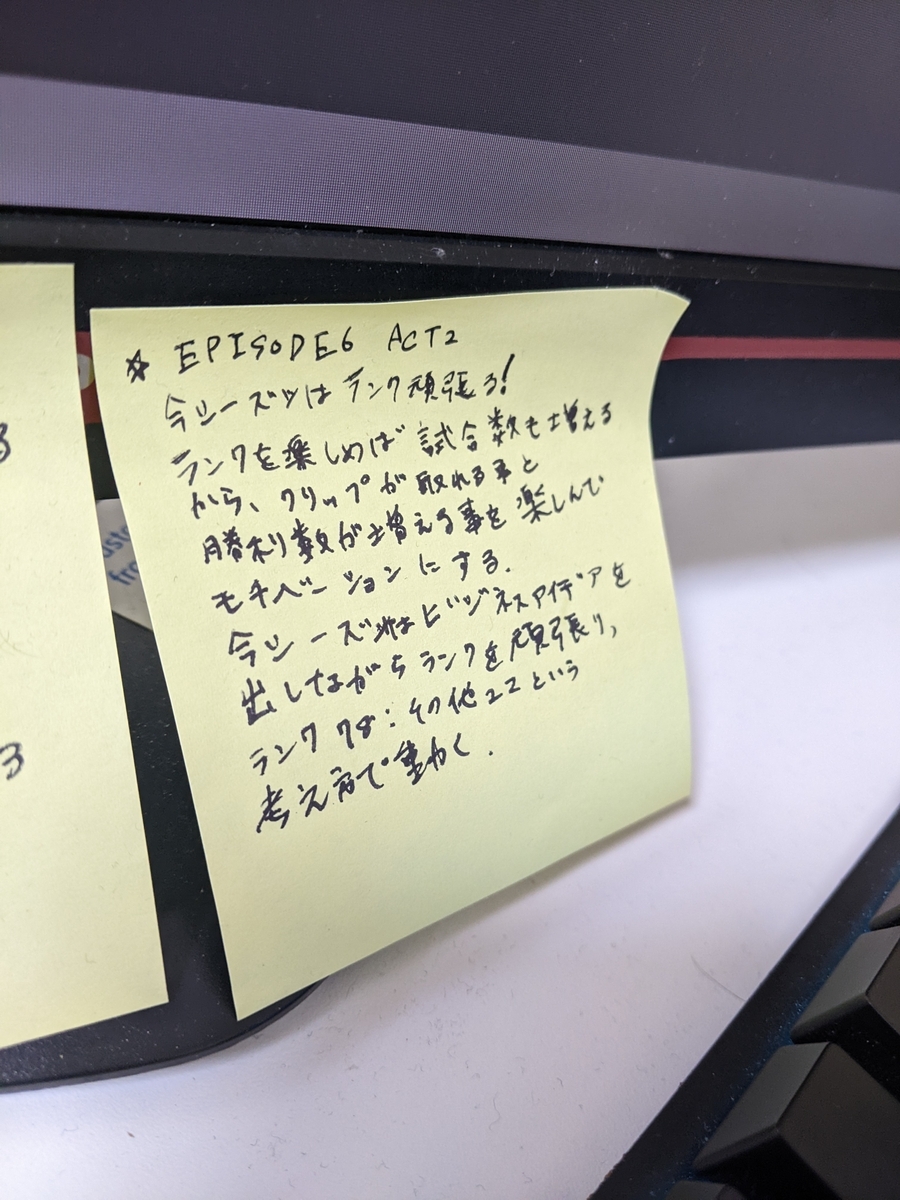 3
3
usto
fro
☆ EPISODE6 ACT2
今シーズンはランク頑張る!
ランクを楽しめば試合数も増える
から、クリップが取れる事と
勝利数が増える事を楽しんで
モチベーションにする.
今シーズンはビジネスアイデアを
出しながらランクを頑張り,
ランク 78:その他22という
考え方で動く.